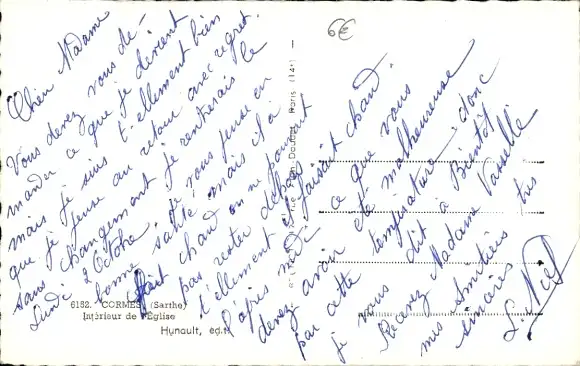 Chère Madame
Vous devez vous de-
mander ce que je devient
mais je suis t-ellement bien
que je pense au retour avec regret.
sans changement je rentrerais le
Lundi 3 Octobre. Je vous pense en
bonne santé mais il a
fait chaud on ne pouvait
pas rester dehors
t'ellement il faisait chaud.
l'après midi
devez avoir été malheureuse
par cette température donc
je vous dit à Bientôt
Recevez Madame Vasseille
mes Amitiés
sincères
L. Noel
6€
6182. CORMES (Sarthe)
Intérieur de l'Église
Hunault, édit.
Paris (14e)